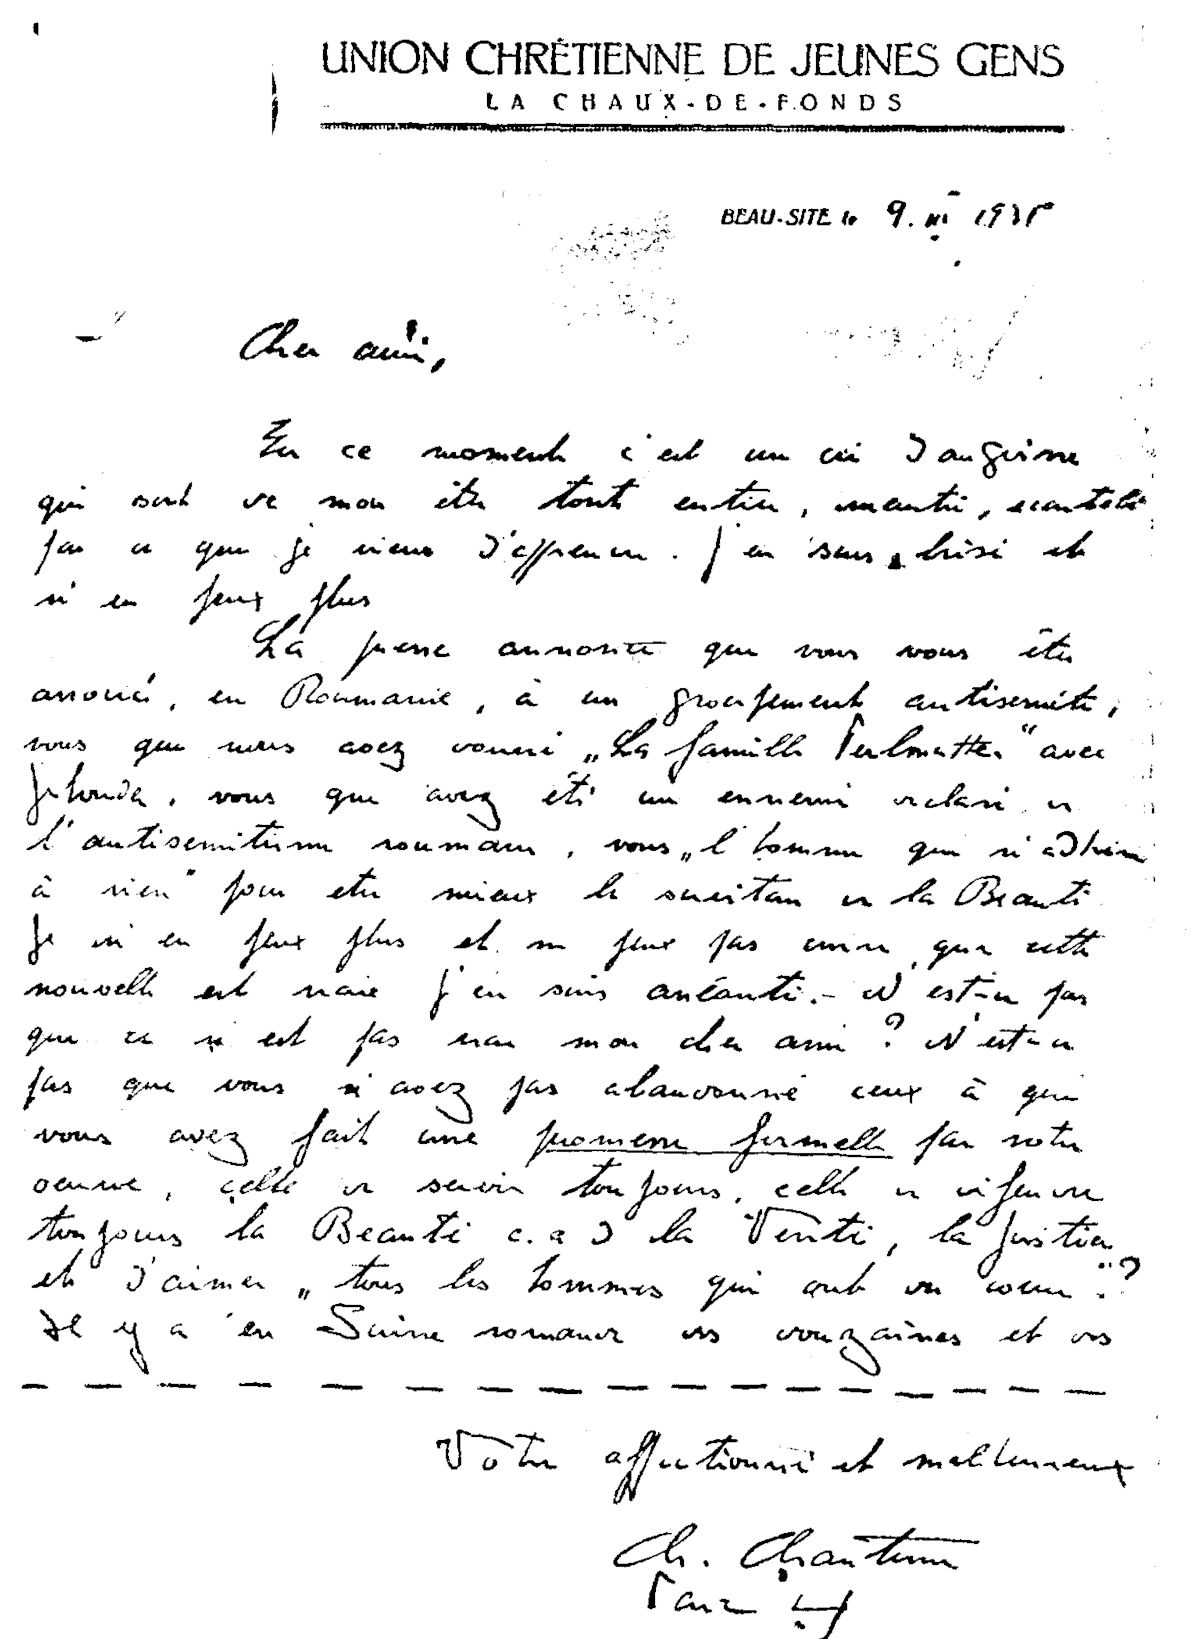 UNION CHRÉTIENNE DE JEUNES GENS
LA CHAUX-DE-FONDS
BEAU-SITE le 9. III 193
Cher ami,
En ce moment c'est un cri d'angoisse
qui sort de mon être tout entier,
par ce que je viens d'apprendre. J'en suis brisé et
n'en peux plus
La presse annonce que vous vous êtes
associé, en Roumanie, à un groupement antisemite,
vous que nous avez donné „La famille Perlmutter" avec
Jehouda, vous que avez été un ennemi déclaré de
l'antisemitisme roumain, vous „l'homme qui n'adhère
à rien" pour etre mieux le serviteur de la Beauté
Je n'en peux plus et ne peux pas croire que cette
nouvelle est vraie J'en suis anéanti.- N'est-ce pas
que ce n'est pas vrai mon cher ami ? N'est-ce
pas que vous n'avez pas abandonné ceux à qui
vous avez fait une promesse formelle par votre
oeuvre, celle de servir toujours, celle de défendre
toujours la Beauté c.a d la Verité, la Justice
et d'aimer „tous les hommes qui ont un coeur"?
Il y a en Suisse romande des douzaines et des
Votre affectionné et malheureux
Ch.